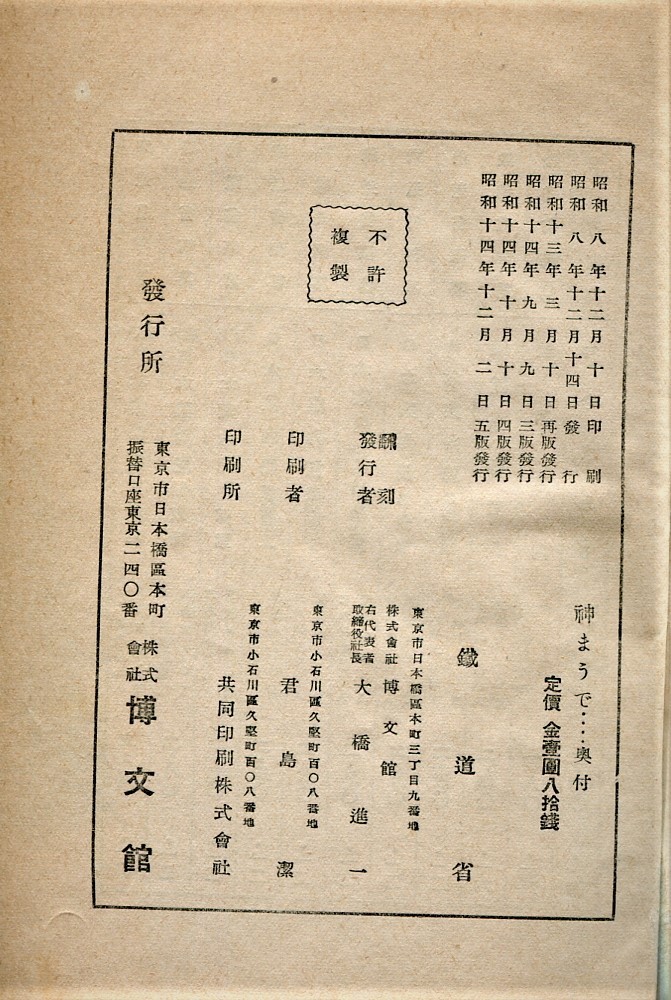 昭和八年十二月十日印刷
昭和八年十二月十四日發行
昭和十三年三月十日再版發行
昭和十四年九月九日三版發行
昭和十四年十月十日四版發行
昭和十四年十二月二日五版發行
神まうで‥‥奧付
定價 金壹圓八拾錢
不許
複製
鐵道省
飜刻
發行者
東京市日本橋區本町三丁目九番地
株式會社 博文館
右代表者
取締役社長
大橋進一
印刷者
東京市小石川區久堅町百〇八番地
君島潔
印刷所
東京市小石川區久堅町百〇八番地
共同印刷株式會社
發行所
東京市日本橋區本町
振替口座東京二四〇番
株式
會社
博文館